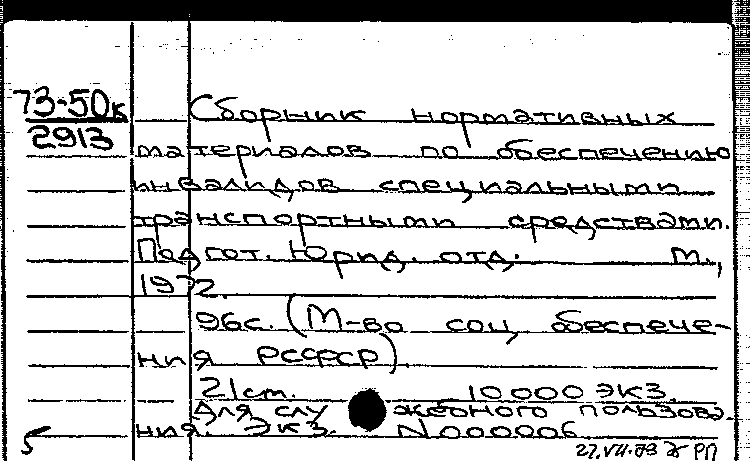 73-50к
2913
Сборник нормативных
материалов по обеспечению
инвалидов специальными
транспортными средствами.
Подгот. Юрид. отд. М.,
1972.
96с. (М-во соц. обеспече-
ния РСФСР).
21 cm. 10.000 ЭКЗ.
Для служебного пользова-
ния. Экз. N000006
5
27.VII.89 РП